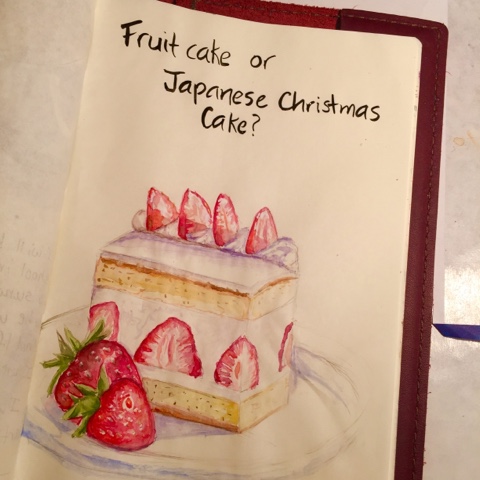 Fruit cake or
Japanese Christmas
Cake?